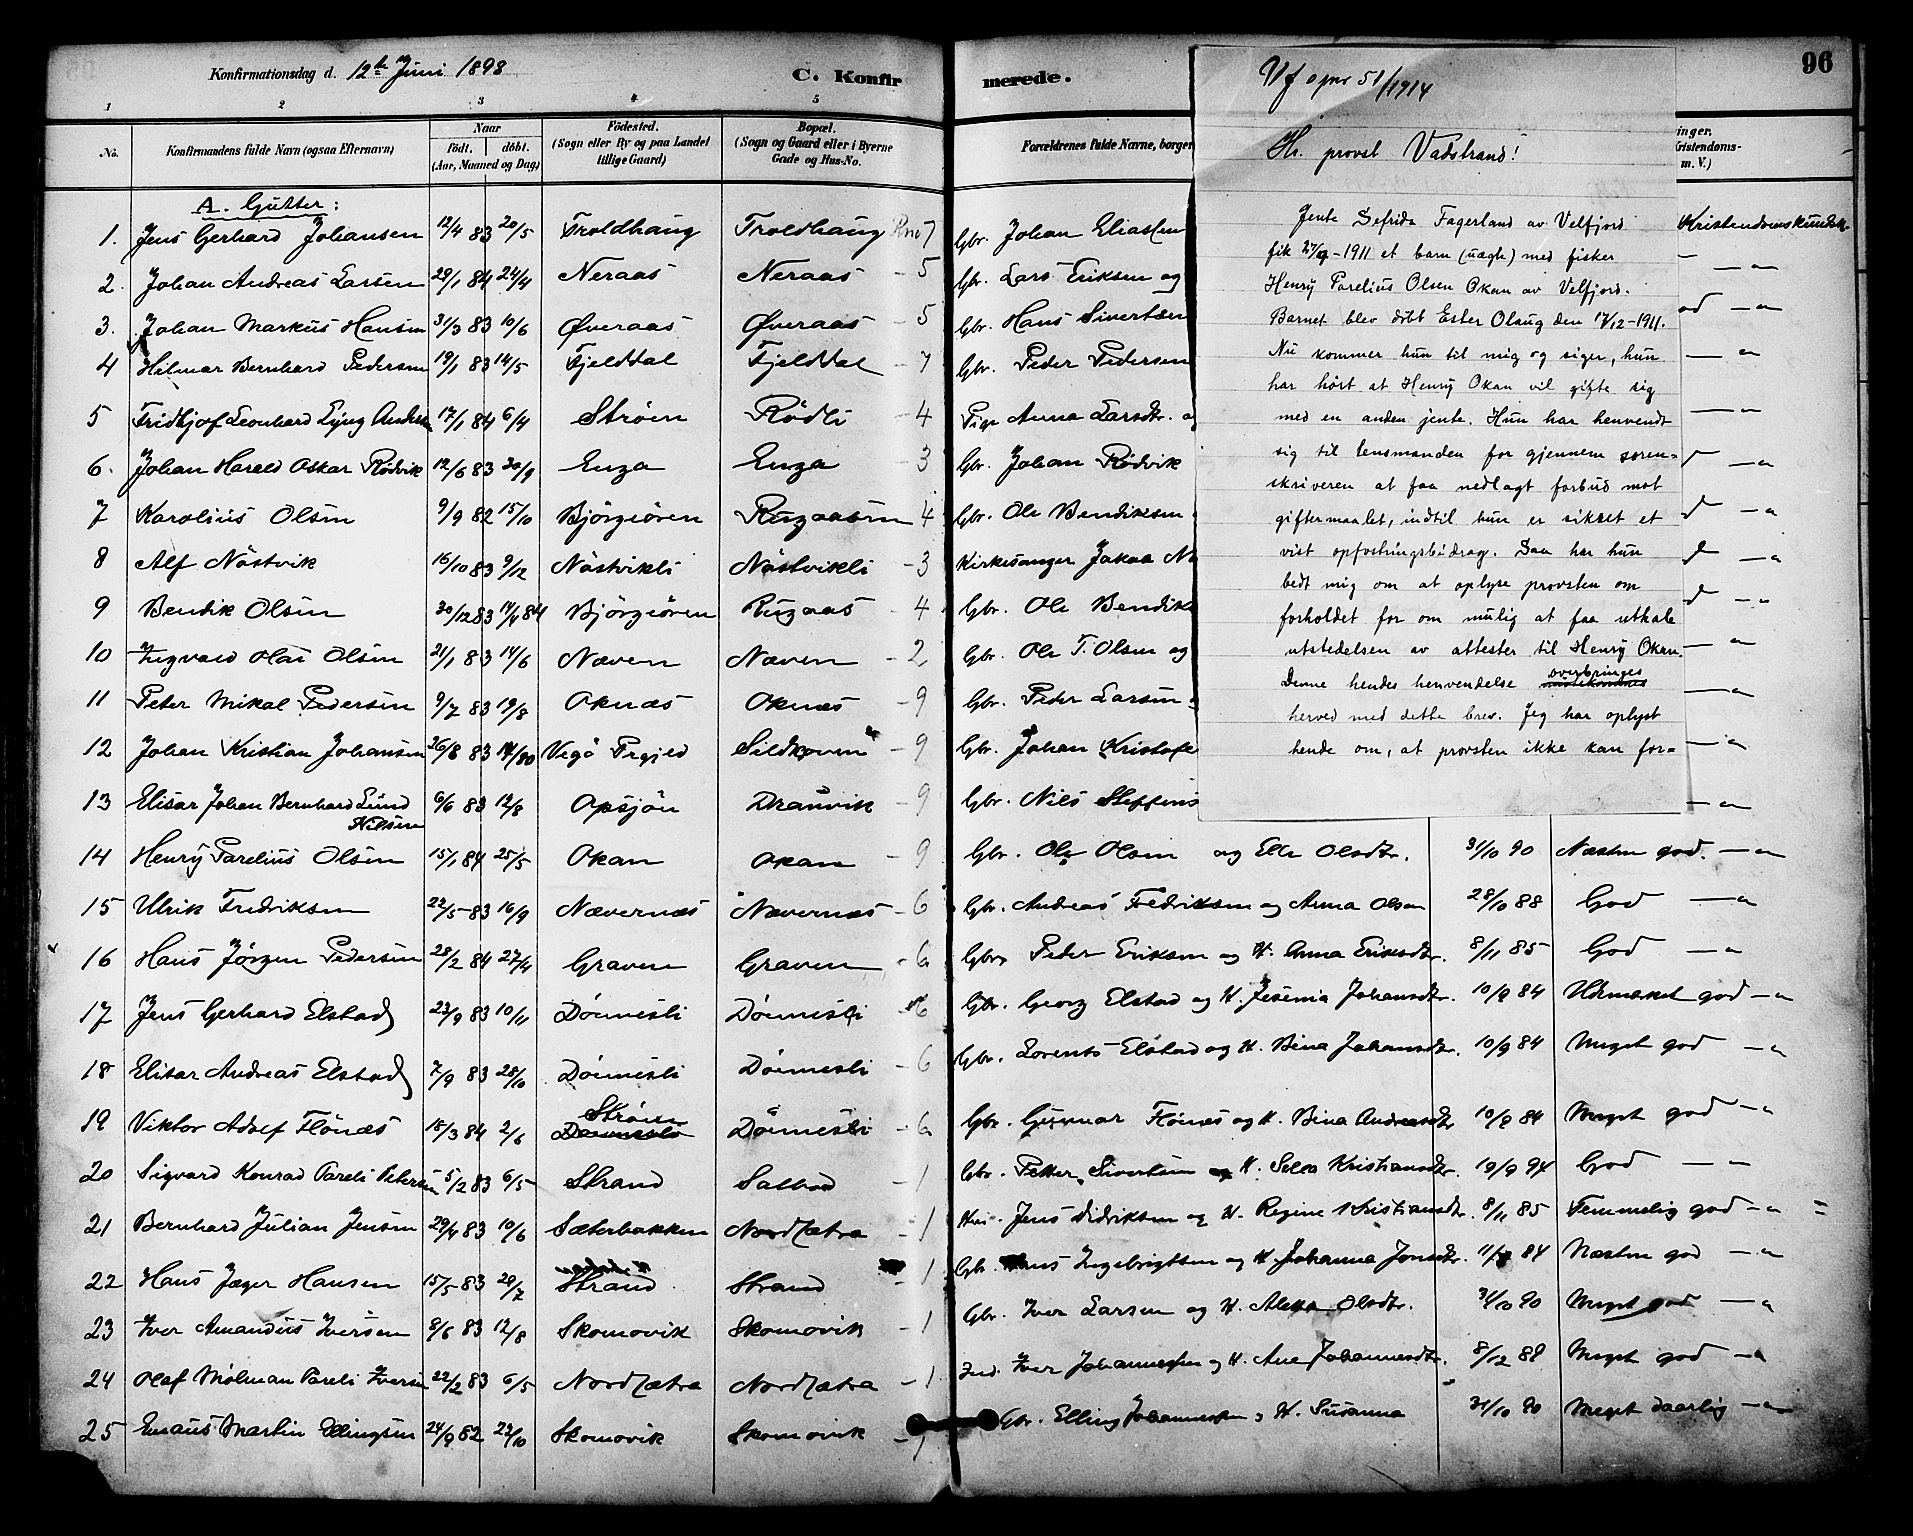 Konfirmationsdag d. 12te Juni 1898
C. Konfirmerede.
96
1 2 3 4 5
No. Konfirmandens fulde Navn (ogsaa Efternavn) Naar födt. döbt. (Aar, Maaned og Dag) Födested. (Sogn eller By og paa Landet tillige Gaard) Bopæl. (Sogn og Gaard eller i Byerne Gade og Hus-No. Forældrenes fulde Navne, borger
inger, Kristendoms- m. V.)
A. Gutter:
1. Jens Gerhard Johansen 12/4 83 20/5 Troldhaug Troldhaug 7 Gbr. Johan Eliassen Kristendomskundsk.
2. Johan Andreas Larsen 29/1 84 24/4 Neraas Neraas - 5 Gbr. Lars Eriksen og — " —
3. Johan Markus Hansen 31/3 83 10/6 Øveraas Øveraas 5 Gbr. Hans Sivertsen — " —
4 Hilmar Bernhard Pedersen 19/1 83 14/5 Fjeldtal Fjeldtal - 7 Gbr. Peder Pedersen — "
5 Fridhjof Leonhard Lyng Anders 17/1 84 6/4 Strøen Rödli - 4 Pige Anna Larsdtr. — "
6. Johan Harald Oskar Rödvik 12/6 83 30/9 Enga Enga - 3 Gbr. Johan Rödvik — "
7 Karolius Olsen 9/9 82 15/10 Björgören Rugaasen 4 Gbr. Ole Bendiksen — "
8 Alf Nöstvik 16/10 83 9/12 Nöstvikli Nöstvikli - 3 Kirkesanger Jakob — "
9 Bendik Olsen 30/12 83 14/4 84 Björgören Rugaas - 4 Gbr. Ole Bendik — "
10 Ingvald Olai Olsen 21/1 83 14/6 Næven Næven - 2 Gbr. Ole T. Olsen og — "
11 Peter Mikal Pedersen 9/7 83 19/8 Oknæs Oknæs - 9 Gbr. Peder Larsen — "
12 Johan Kristian Johansen 26/8 83 Vegö Prgjeld - 9 Gbr. Johan Kristofe — "
13 Elisar Johan Bernhard Lund Nilsen 6/6 83 12/8 Opsjön Dranvik - 9 Gbr. Nils Steffens — "
14 Henry Parelius Olsen 15/1 84 25/5 Okan Okan - 9 Gbr. Ole Olsen og Elle Olsdtr. 31/10 90 Næsten god. — "
15 Ulrik Fredriksen 22/5 83 16/9 Nævernæs Nævernæs - 6 Gbr. Andreas Fredriksen og Anna Olsen 28/10 88 God — "
16 Hans Jørgen Pedersen 28/2 84 27/4 Graven Graven - 6 Gbr. Peder Eriksen og H. Anna Eriksdtr. 8/11 85 God — "
17 Jens Gerhard Elstad 23/9 83 10/11 Dönnesli Dönnesli - 6 Gbr. Georg Elstad og H. Jesenia Johansdtr. 10/9 84 Udmærket god — "
18 Elisar Andreas Elstad 7/9 83 28/10 Dönnesli Dönnesli - 6 Gbr. Lorents Elstad og H. Bina Johansdtr. 10/9 84 Meget god — "
19 Viktor Adolf Flönæs 18/3 84 2/6 Strøen Dönnesli - 6 Gbr. Gunnar Flönæs og H. Bina Andreasdtr 10/9 84 Meget god — "
20 Sigvard Konrad Pareli Petersen 5/2 83 6/5 Strand Salbod - 1 Gbr. Petter Sivertsen og H. Kristiansdtr. 19/9 94 God — —
21 Bernhard Julian Jensen 29/4 83 10/6 Sæterbakken Nordsætra - 1 Jens Didriksen og H. Regine Kristiansdtr. 8/11 85 Temmelig god — " =
22 Hans Jæger Hansen 15/5 83 29/7 Strand Strand - 1 Gbr. Hans Ingebrigtsen og H. Johanna Jonsdtr. 84 Næsten god — "
23 Iver Amandus Iversen 8/6 83 12/8 Skomovik Skomovik - 1 Gbr. Iver Larsen og H. Olsdtr. 31/10 90 Meget god — "
24 Olaf Mölman Pareli Iversen 22/2 83 6/5 Nordsætra Nordsætra - 1 Ind. Iver Johannessen og H. Ane Johannesdtr. 8/12 88 Meget god — "
25 Enaus Martin Ellingsen 24/9 82 22/10 Skomovik Skomovik - 1 Gbr. Elling Johannessen og H. Susanna 31/10 90 Meget daarlig — "
Vf opnr 51/1914
Hr. provst Vadstrand!
Jente Defrida Fagerland av Velfjord
fik 27/9-1911 et barn (uægte) med fisker
Henry Parelius Olsen Okan av Velfjord.
Barnet blev döbt Ester Olaug den 17/12-1911.
Nu kommer hun til mig og siger, hun
har hört at Henry Okan vil gifte sig
med en anden jente. Hun har henvendt
sig til lensmanden for gjennem soren-
skriveren at faa nedlagt forbud mot
giftermaalet, indtil hun er sikret et
vist opfostringsbidrag. Saa har hun
bedt mig om at oplyse provsten om
forholdet for om mulig at faa utkale
utstedelsen av attester til Henry Okan.
Denne hendes henvendelse overbringes
herved med dette brev. Jeg har oplyst
hende om, at provsten ikke kan for-